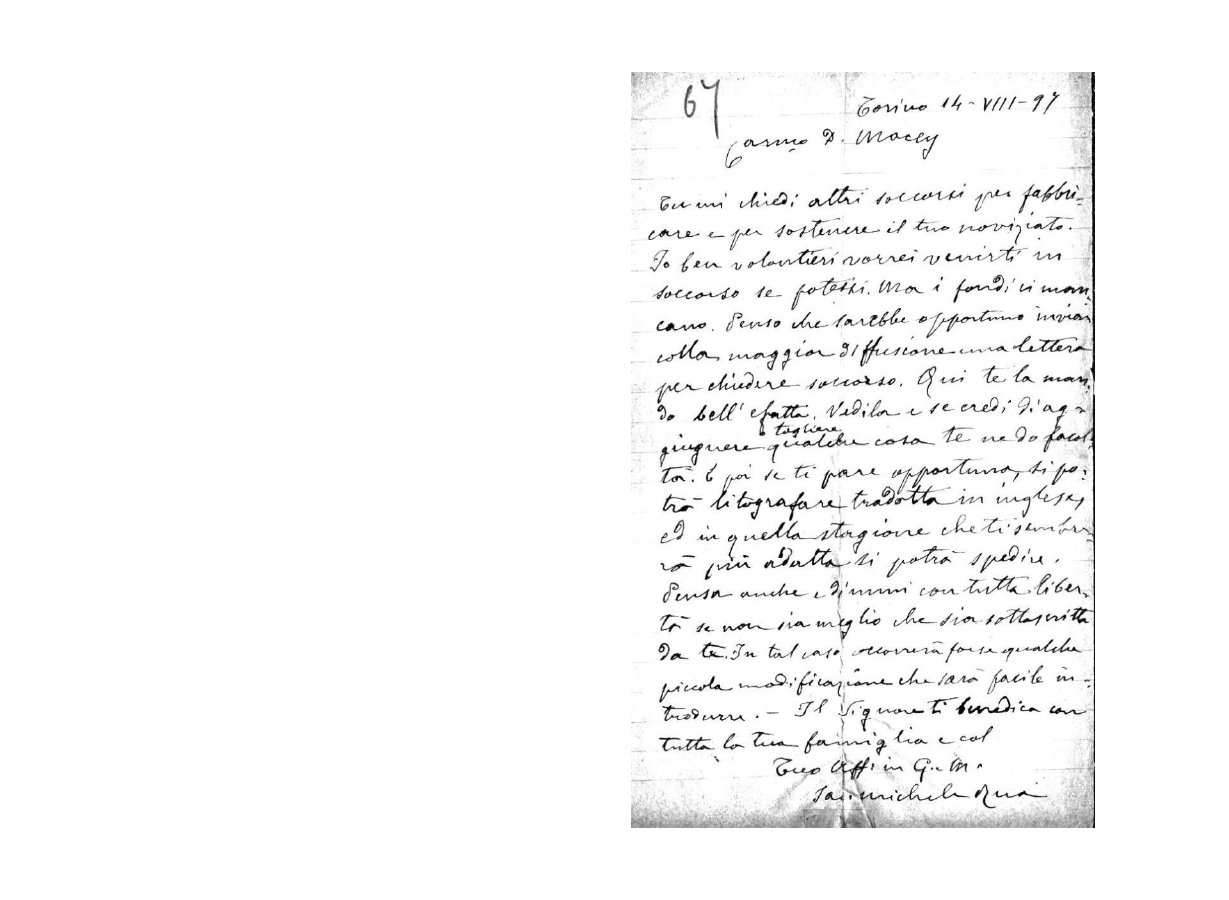 67
Torino 14-VIII-97
Carmo D. Macey
Tu mi chiedi altri soccorsi per fabbri=
care e per sostenere il tuo noviziato.
Io ben volontieri vorrei venirti in
soccorso se potessi. Ma i fondi ci man-
cano. Penso che sarebbe opportuno inviar
colla maggior diffusione una lettera
per chiedere soccorso. Qui te la man-
do bell'e fatta. Vedila e se credi d'ag=
o togliere
giugnere qualche cosa te ne do facol-
tà. E poi se ti pare opportuno, si po-
trà litografare tradotta in inglese,
ed in quella stagione che ti sembre-
rà più adatta si potrà spedire.
Pensa anche e dimmi con tutta liber-
tà se non sia meglio che sia sottoscritta
da te. In tal caso occorrerà forse qualche
piccola modificazione che sarà facile in-
trodurre. - Il Signore ti benedica con
tutta la tua famiglia e col
Tuo Aff. in G. e M.
Sac. Michele Rua